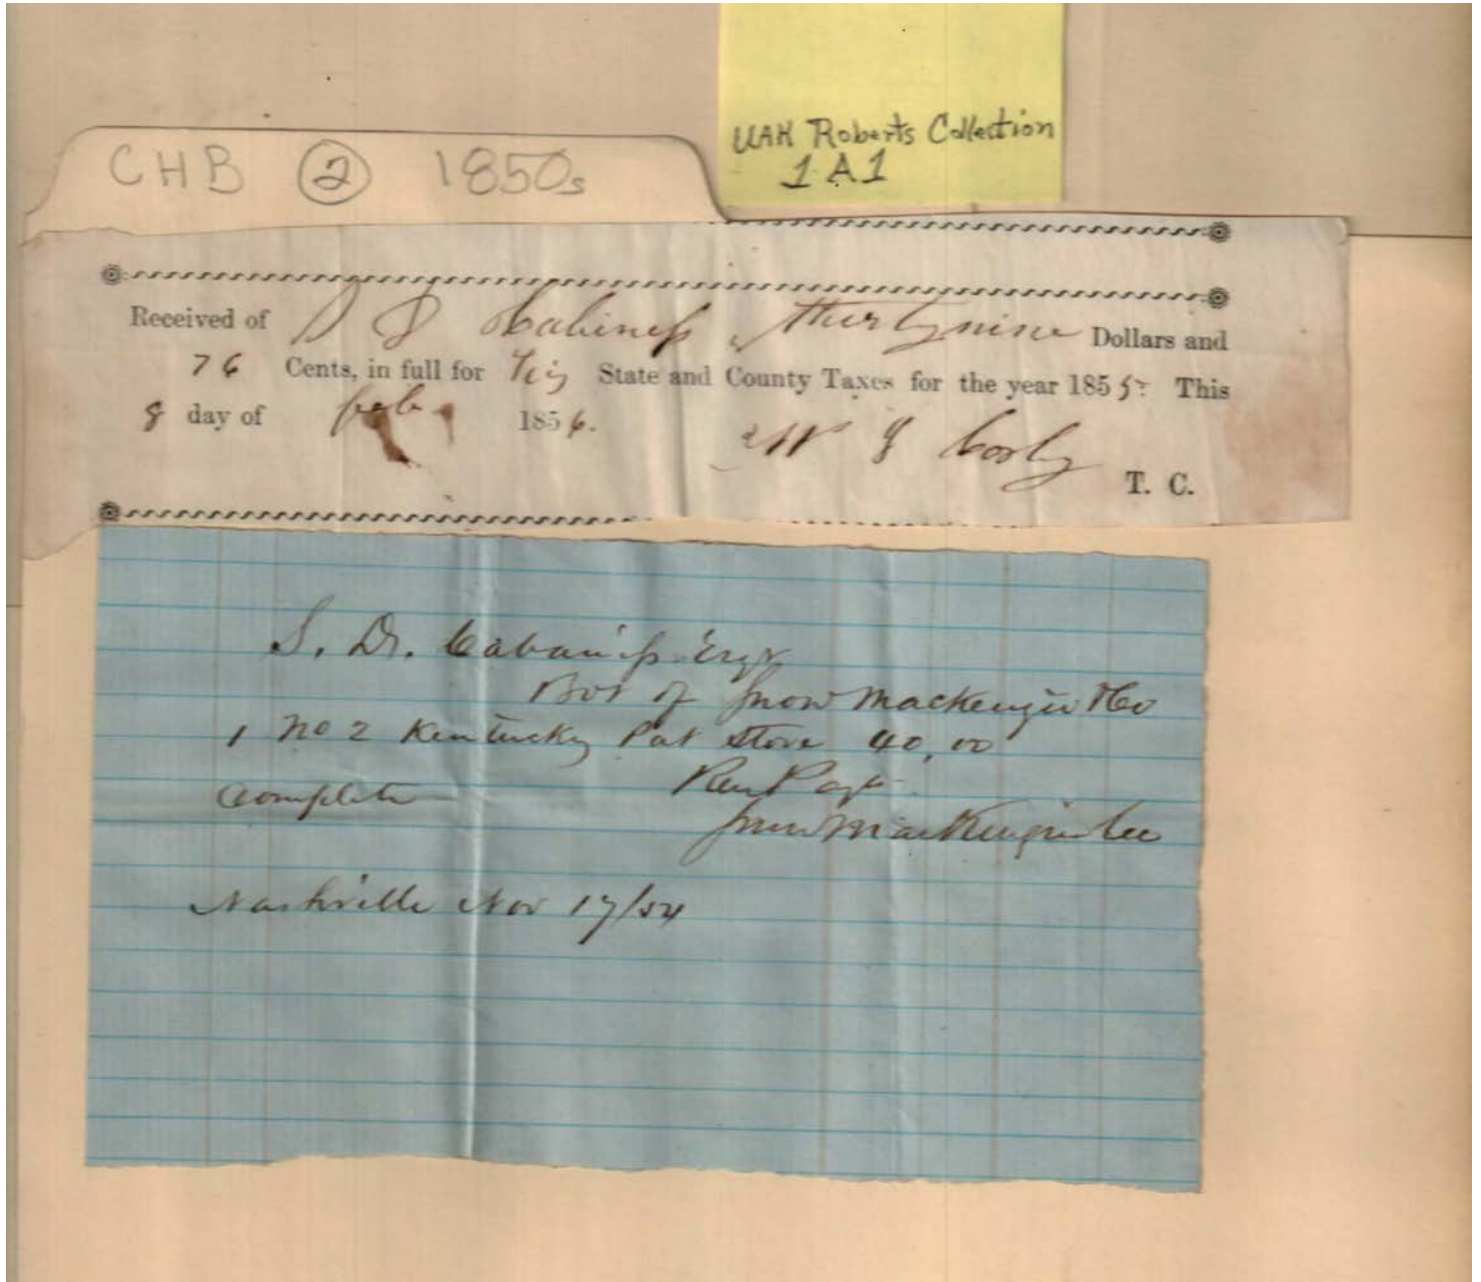 UAH Roberts Collection
1A1
CHB 2 1850s
Received of S D Cabiness thirty nine Dollars and
76 Cents, in full for his State and County Taxes for the year 1855. This
8 day of feby 1856.
T. C.
S. D. Cabaniss Esqr
Bot of Snow Mackenzie & Co
1 No 2 Kentucky Pat Stove 40,00
Complete Rec Payt
Snow MacKenzie & Co
Nashville Nov 17/54